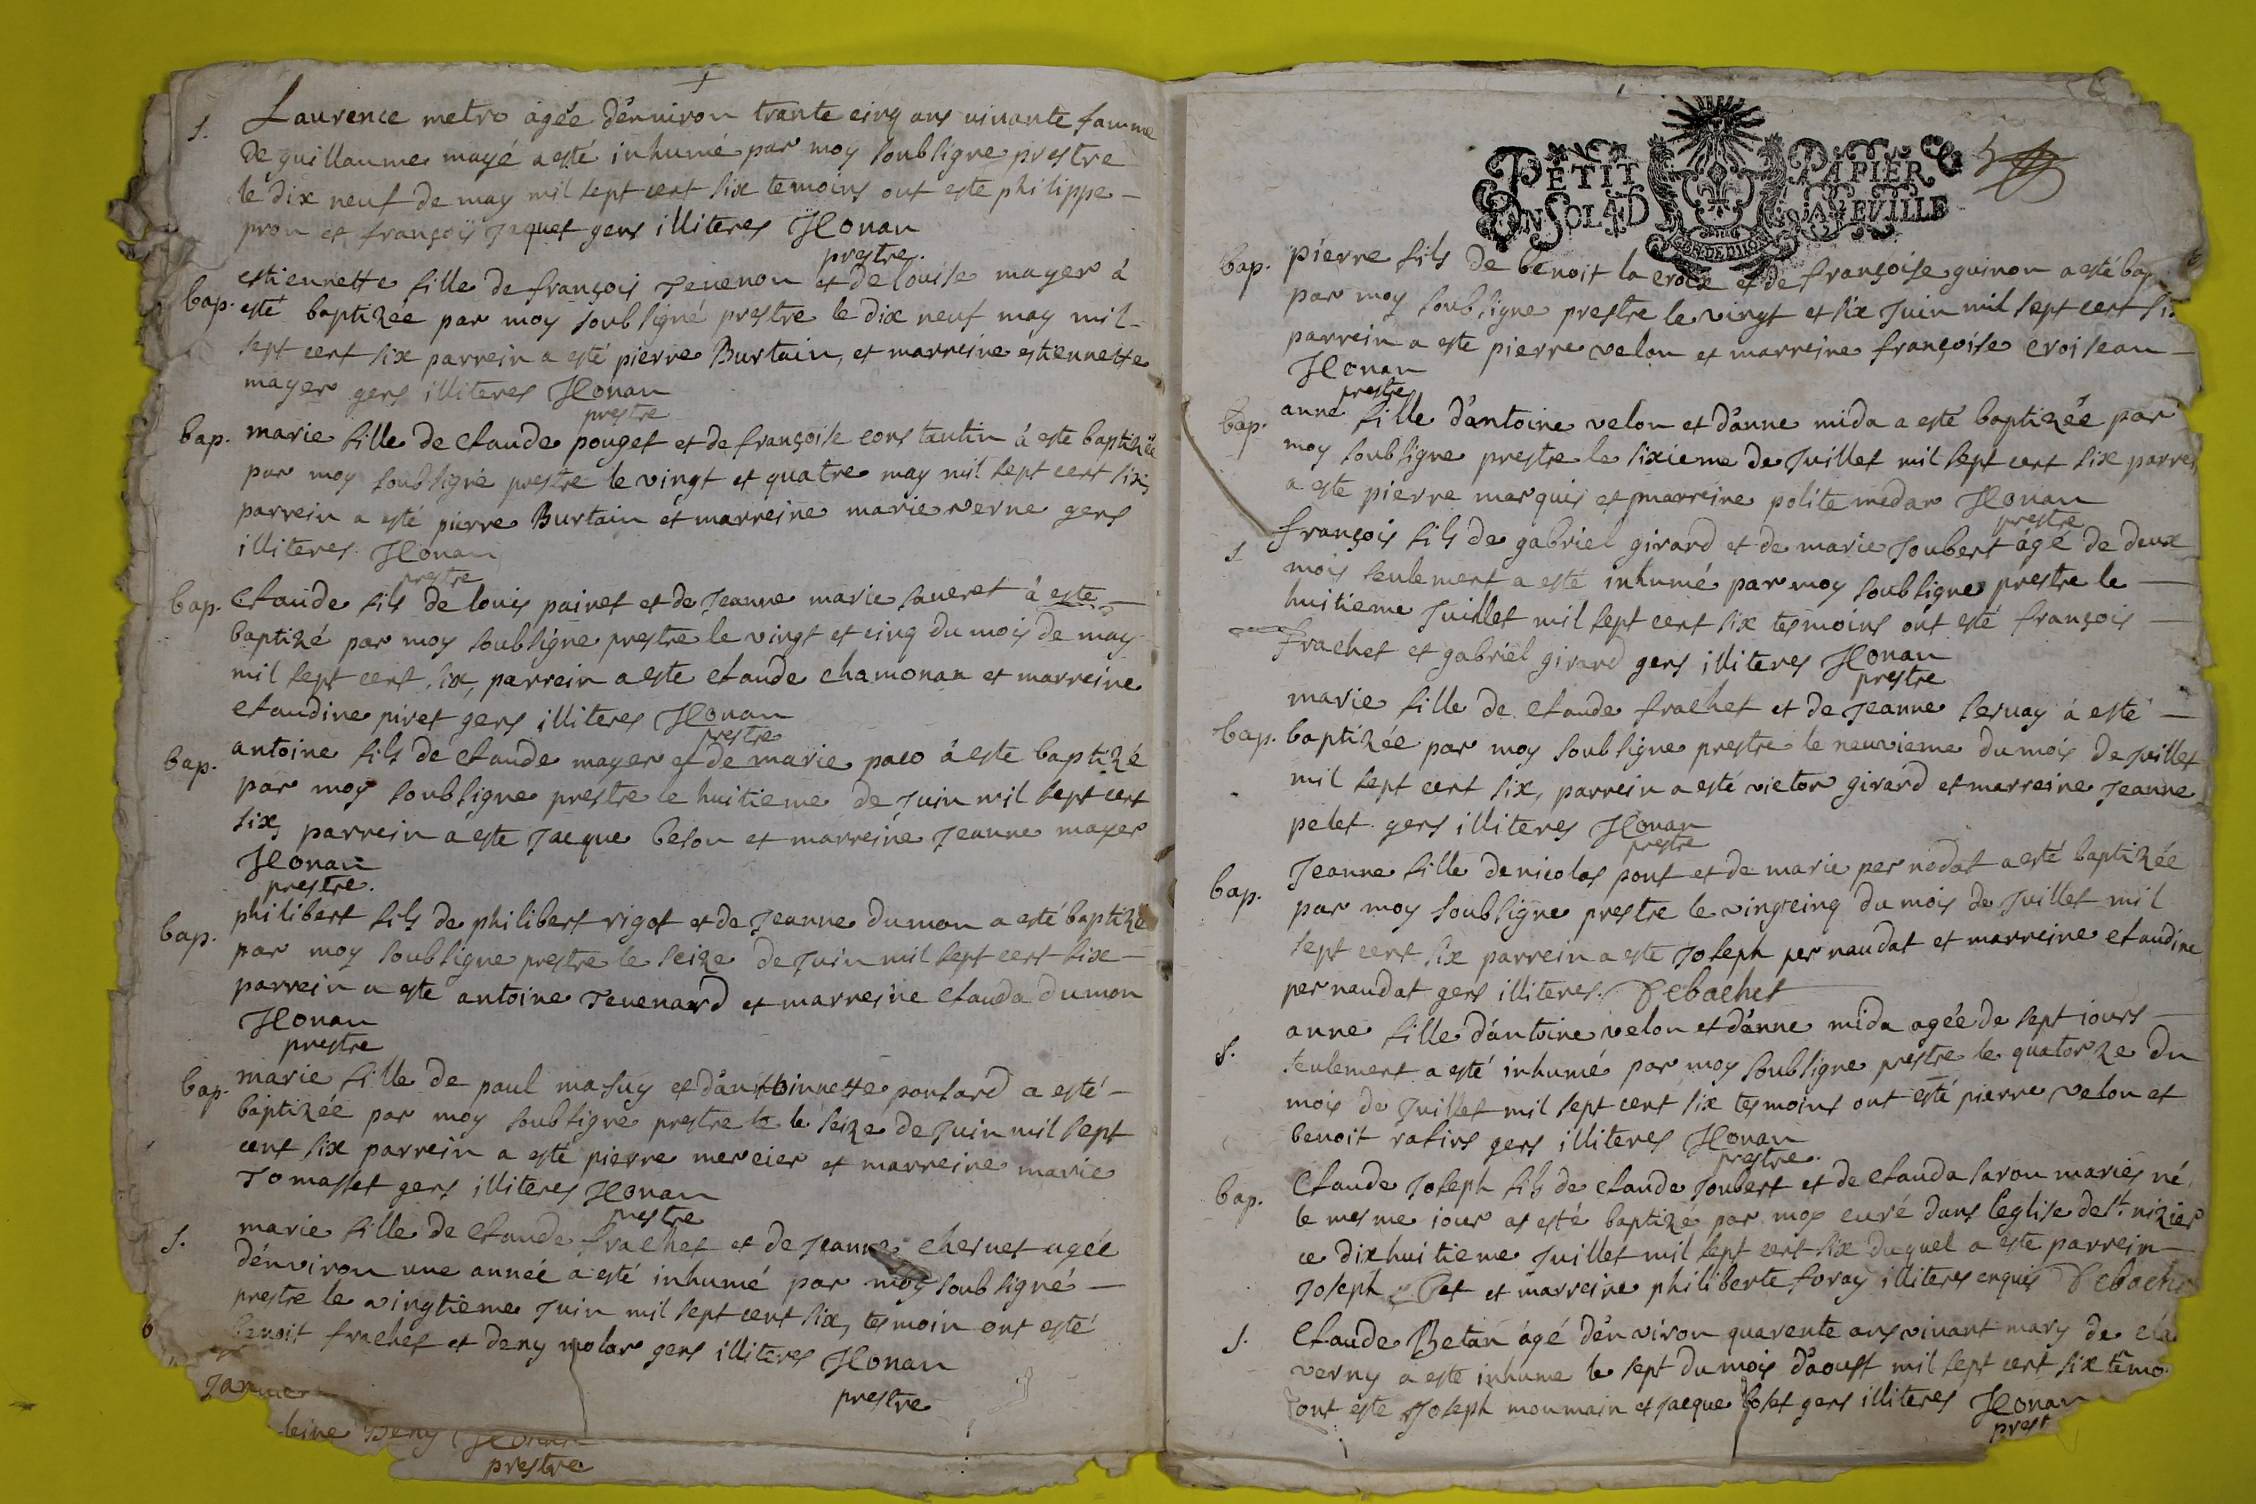 s.
Laurence metro agée d'enuiron trante cinq ans uiuante famme
de guillaume mayé a esté inhumé par moy soubsigne prestre
le dix neuf de may mil sept cent six temoins ont este philippe
pron et françois Jaquet gens illiteres Honan
prestre.
bap.
estiennette fille de françois Teuenon et de louise mayer à
esté baptizée par moy soubsigné prestre le dix neuf may mil
sept cent six parrein a esté pierre Burtain, et marreine estiennette
mayer gens illiteres Honan
prestre
bap.
marie fille de Claude pouget et de françoise constantin à este baptizée
par moy soubsigné prestre le vingt et quatre may mil sept cent six,
parrein a esté pierre Burtain et marreine marie verne gens
illiteres Honan
prestre
bap.
Claude fils de louis painet et de Jeanne marie saueret à este
baptizé par moy soubsigne prestre le vingt et cinq du mois de may
mil sept cent six, parrein a este claude chamonan et marreine
claudine piret gens illiteres Honan
prestre
bap.
antoine fils de claude mayer et de marie paco à este baptizé
par moy soubsigne prestre le huitieme de Juin mil sept cent
six, parrein a este Jacque beson et marreine Jeanne mayer
Honan
prestre.
bap.
philibert fils de philibert rigot et de Jeanne dumon a esté baptizé
par moy soubsigne prestre le seize de Juin mil sept cent six
parrein a este antoine Teuenard et marreine clauda dumon
Honan
prestre
bap.
marie fille de paul masuy et d'anthoinnette ponsard a esté
baptizée par moy soubsigné prestre le le seize de Juin mil sept
cent six parrein a esté pierre mercier et marreine marie
Tomasset gens illiteres Honan
prestre
s.
marie fille de claude frachet et de Jeanne cheruet agée
d'environ une année a esté inhumé par moy soubsigné
prestre le vingtieme Juin mil sept cent six, tesmoin ont esté
benoit frachet et deny molar gens illiteres Honan
prestre
b
Deny Honan
prestre
PETIT PAPIER
UN SOL 4 D LA FEUILLE
bap.
pierre fils de benoit la croix et de françoise guinon a esté bap
par moy soubsigne prestre le vingt et six Juin mil sept cent six
parrein a este pierre velon et marreine françoise croisean
Honan
prestre
bap.
anne fille d'antoine velon et d'anne mida a esté baptizée par
moy soubsigne prestre le sixieme de Juillet mil sept cent six parrei
a este pierre marquis et marreine polite medar Honan
prestre
s
françois fils de gabriel girard et de marie Joubert âgé de deux
mois seulement a esté inhumé par moy soubsigne prestre le
huitieme Juillet mil sept cent six tesmoins ont esté françois
frachet et gabriel girard gens illiteres Honan
prestre
bap.
marie fille de claude frachet et de Jeanne seruay à esté
baptizée par moy soubsigne prestre le neuvieme du mois de Juillet
mil sept cent six, parrein a esté victor girard et marreine Jeanne
pelet gens illiteres Honan
prestre
bap.
Jeanne fille de nicolas pont et de marie per nodat a esté baptizée
par moy soubsigne prestre le vingt cinq du mois de Juillet mil
sept cent six parrein a este Joseph per naudat et marreine claudine
per naudat gens illiteres. Debachet
s.
anne fille d'antoine velon et d'anne mida agée de sept iours
seulement a esté inhumé par moy soubsigne prestre le quatorze du
mois de Juillet mil sept cent six tesmoins ont esté pierre velon et
benoit rafins gens illiteres Honan
prestre.
bap.
Claude Joseph fils de claude Joubert et de clauda sarou mariés né
le mesme iour as esté baptizé par moy curé dans l'eglise de st. nizier
ce dixhuitieme Juillet mil sept cent six duquel a este parrein
Joseph et marreine philiberte foray illiteres enquis Debache
s.
Claude Betan âgé d'environ quarente ans vivant mary de cla
verny a este inhume le sept du mois d'aoust mil sept cent six témo
ont este Joseph moumain et Jacque boset gens illiteres Honan
prest